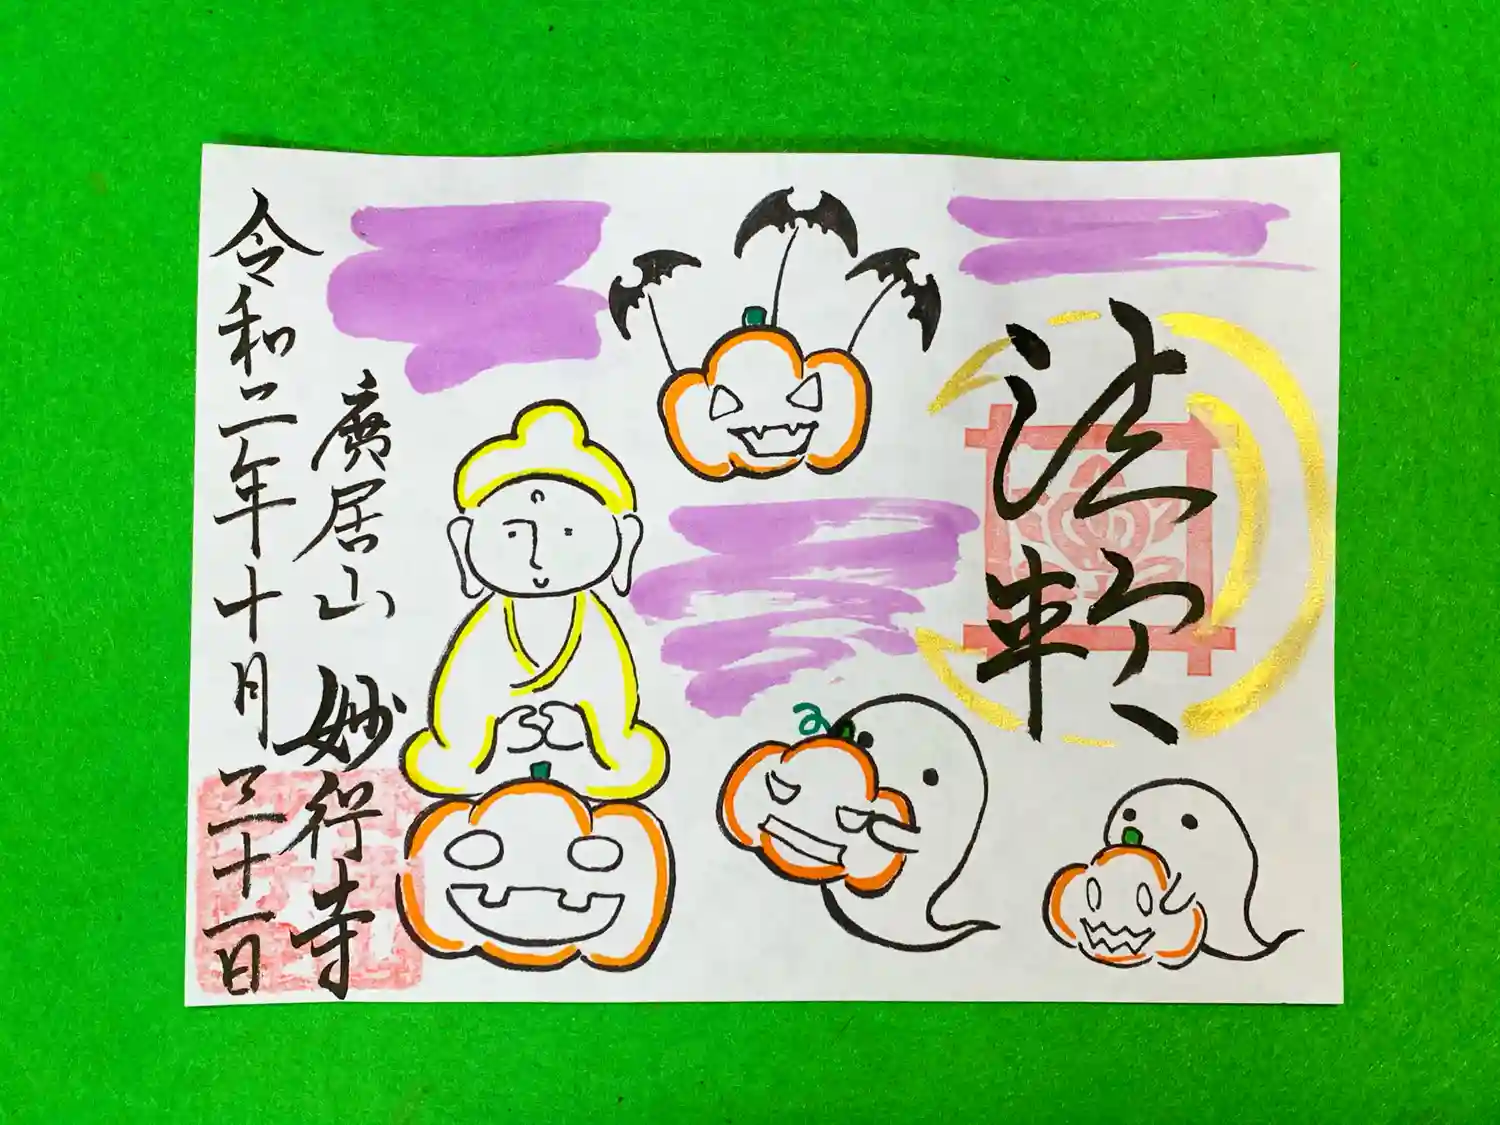 法輪
廣居山 妙行寺
令和二年十月三十一日